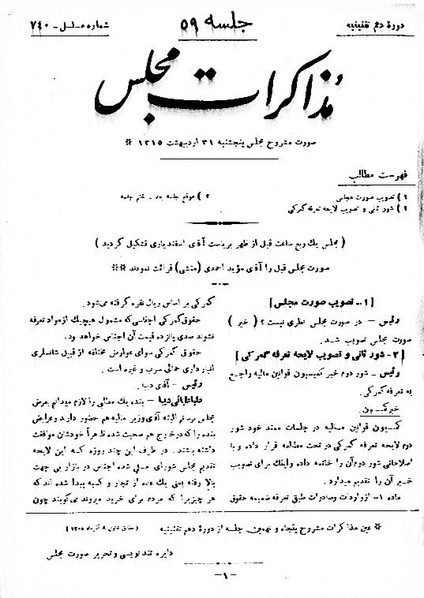 دورهٔ دهم تقنینیه
جلسه ۵۹
شماره مسلسل - ۷۴۰
مذاکرات مجلس
صورت مشروح مجلس پنجشنبه ۳۱ اردیبهشت ۱۳۱۵ ※
فهرست مطالب
۱) تصویب صورت مجلس
۲) شور ثانی و تصویب لایحه تعرفه گمرکی
۳) موقع جلسه بعد - ختم جلسه
(مجلس یك ربع ساعت قبل از ظهر بریاست آقای اسفندیاری تشکیل گردید)
صورت مجلس قبل را آقای مؤید احمدی (منشی) قرائت نمودند ※※
[۱- تصویب صورت مجلس]
رئیس - در صورت مجلس نظری نیست؟ (خیر)
صورت مجلس تصویب شد.
[۲- شور ثانی و تصویب لایحه تعرفه گمرکی]
رئیس - شور دوم خبر کمیسیون قوانین مالیه راجع
به تعرفه گمرکی.
خبر کمیسیون
کمسیون قوانین مالیه در جلسات ممتد خود شور
دوم لایحه تعرفه گمرکی را تحت مطالعه قرار داده و با
اصلاحاتی شور دوم آن را خاتمه داده و اینك برای تصویب
خبر آن را تقدیم میدارد.
ماده ۱- از واردات و صادرات طبق تعرفه ضمیمه حقوق
گمرکی بر اساس ریال نقره گرفته می‌شود.
حقوق گمرکی اجناسی که مشمول هیچیك از مواد تعرفه
نشوند صدی پانزده قیمت آن اجناس خواهد بود.
حقوق گمرکی سوای عوارض مختلفه از قبیل شانسلری
انبار داری حمالی سرب و غیره است.
رئیس - آقای دیبا.
طباطبائی دیبا - بنده یك مطلبی را لازم میدانم بعرض
مجلس برسانم البته آقای وزیر مالیه هم حضور دارند و عرایض
بنده را که در خارج هم صحبت شده ظاهراً خودشان موافقت
داشته باشند. در ظرف این چند روزه که این لایحه
تقدیم مجلس شورای ملی شده اجناس در بازار بی جهت
بالا رفته یعنی یك عده از تجار و کسبه پیدا شده اند که
هر چیزیرا که مردم برای خرید میروند میگویند چون
※ عین مذاکرات مشروح پنجاه و نهمین جلسه از دورهٔ دهم تقنینیه
دایره تند نویسی و تحریر صورت مجلس
-۱-